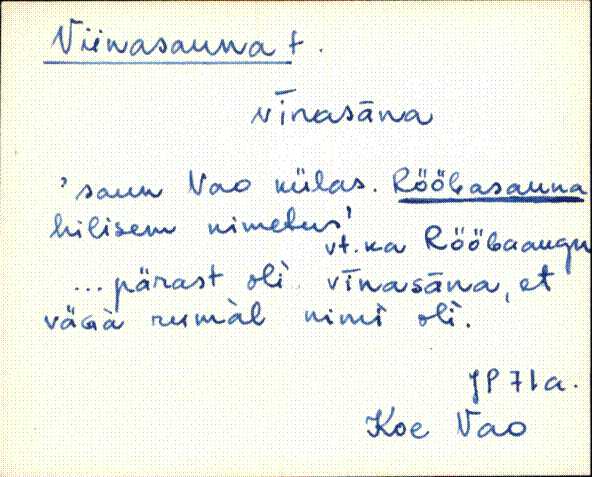 Viinasauna t.
vīnasāna
'saun Vao külas. Rööbasauna
hilisem nimetus'
vt. ka Rööbaaugu
... pärast oli vīnasāna, et
vägà rumàl nimì olì.
JP 71a.
Koe Vao